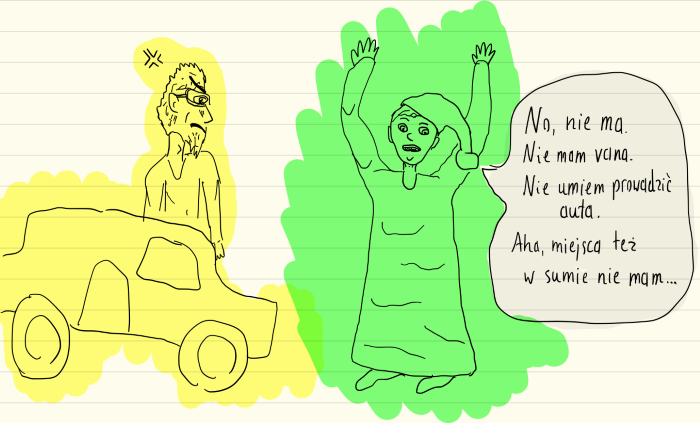 No, nie ma.
Nie mam vana.
Nie umiem prowadzić
auta.
Aha, miejsca też
w sumie nie mam...